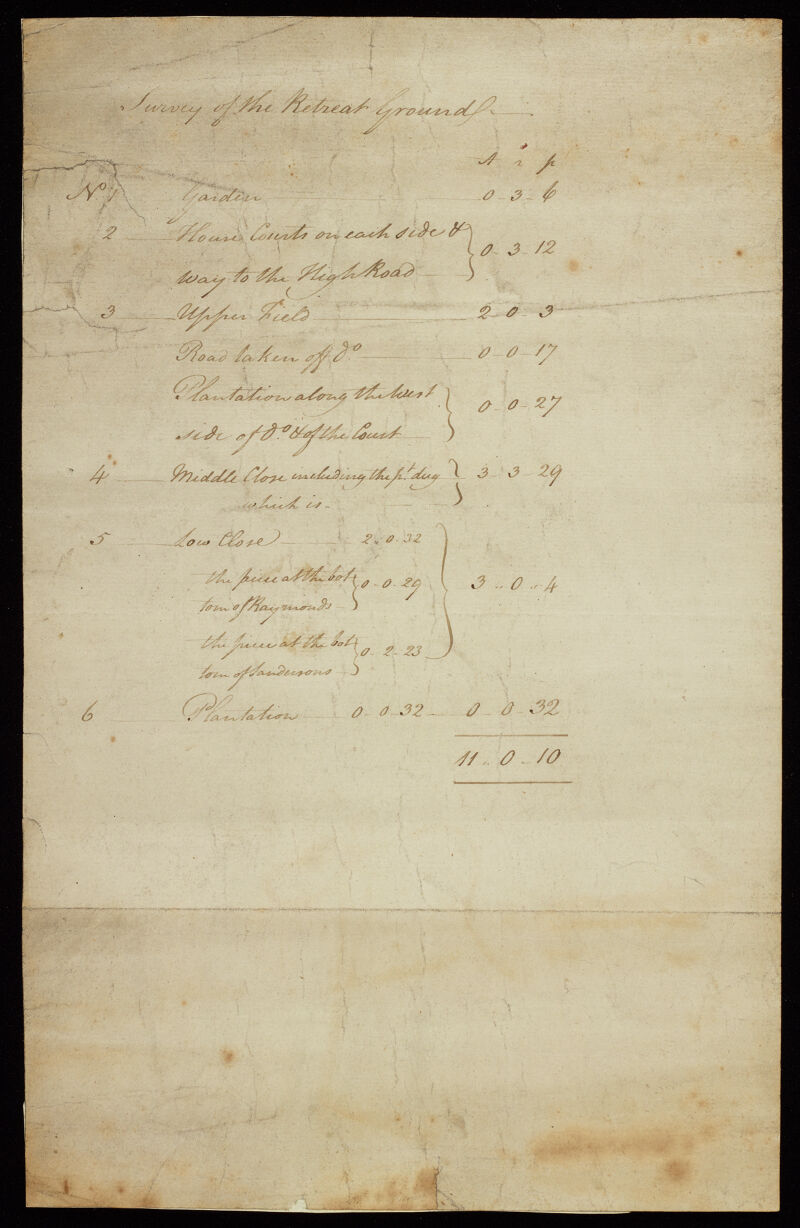 Survey of the Retreat Grounds
A r p
No 1 Garden 0 - 3 - 6
2 House Courts on each side & } 0 - 3 - 12
way to the High Road
3 Upper Field 2 - 0 - 3
Road taken off do 0 - 0 - 17
Plantation along the west } 0 - 0 - 27
side of do & of the Court
4 Middle Close including the pt dug } 3 - 3 - 29
which is -
5 Low Close 2 - 0 - 32
the piece at the bot } 0 - 0 - 29 } 3 .. 0 .. 4
tom of Raymonds
the piece at the bot } 0 - 2 - 23
tom of Sandersons
6 Plantation 0 - 0 - 32 - 0 - 0 - 32
11 .. 0 - 10